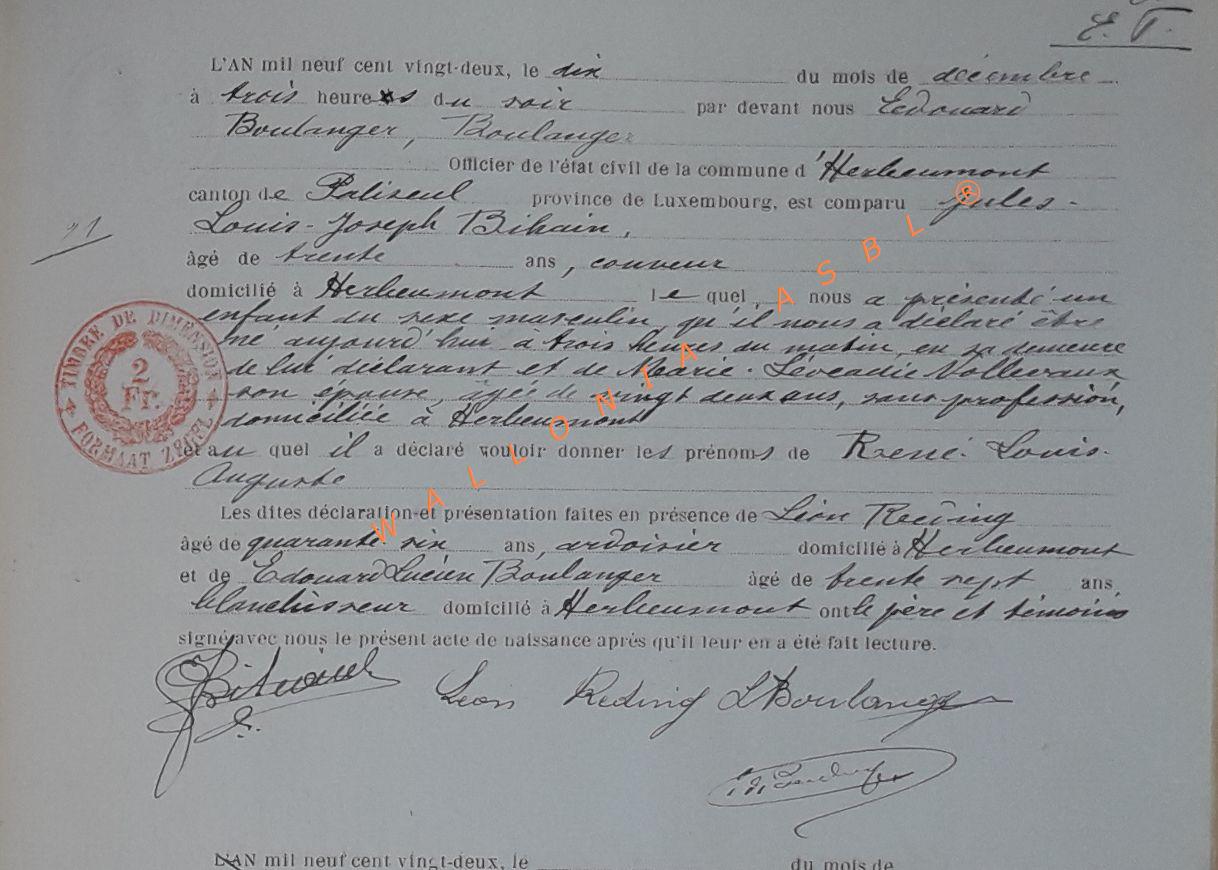 E. T.
L'AN mil neuf cent vingt-deux, le dix du mois de décembre
à trois heures du soir par devant nous Edouard
Boulanger, Boulanger
Officier de l'état civil de la commune d'Herbeumont
canton de Paliseul province de Luxembourg, est comparu Jules-
Louis-Joseph Bihain,
âgé de trente ans, couvreur
domicilié à Herbeumont le quel, nous a présenté un
enfant du sexe masculin, qu'il nous a déclaré être
né aujourd'hui à trois heures du matin, en sa demeure
de lui déclarant et de Marie-Léocadie Nollevaux
son épouse, âgée de vingt deux ans, sans profession,
domiciliée à Herbeumont
et au quel il a déclaré vouloir donner les prénoms de René-Louis-
Auguste
Les dites déclaration et présentation faites en présence de Léon Reding
âgé de quarante six ans, ardoisier domicilié à Herbeumont
et de Edouard Lucien Boulanger âgé de trente sept ans,
blanchisseur domicilié à Herbeumont ont le père et témoins
signé avec nous le présent acte de naissance après qu'il leur en a été fait lecture.
Léon Reding L Boulanger
L'AN mil neuf cent vingt-deux, le du mois de
TIMBRE DE DIMENSION
2
Fr.
FORMAAT ZEGEL
WALLONIA ASBL ®